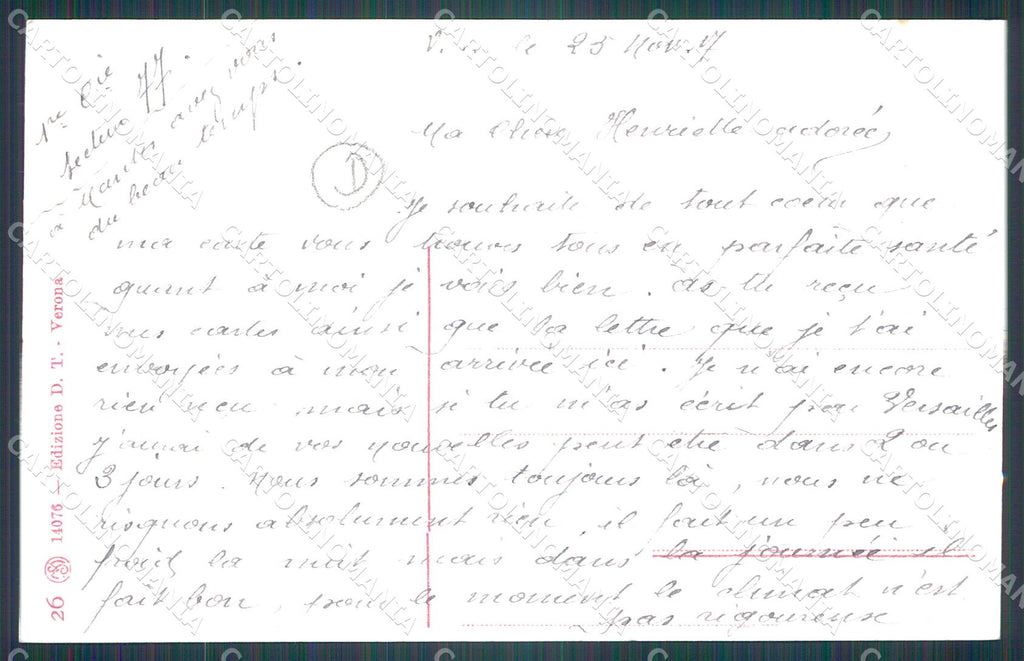 le 25 Nov. 17
1re Cie
secteur 77.
à Nantes avez vous
du beau temps.
Ma chère Henriette adorée,
D
Je souhaite de tout cœur que
ma carte vous trouves tous en parfaite santé
quant à moi je vais bien. as tu reçu
mes cartes ainsi que la lettre que je t'ai
envoyées à mon arrivée ici. Je n'ai encore
rien reçu mais si tu m'as écrit par Versailles
j'aurai de vos nouvelles peut etre dans 2 ou
3 jours. Nous sommes toujours là, nous ne
risquons absolument rien, il fait un peu
froid la nuit mais dans la journée il
fait bon, pour le moment le climat n'est
pas rigoureuse
26 14076 — Edizione D. T. - Verona
CARTOLINOMANIA